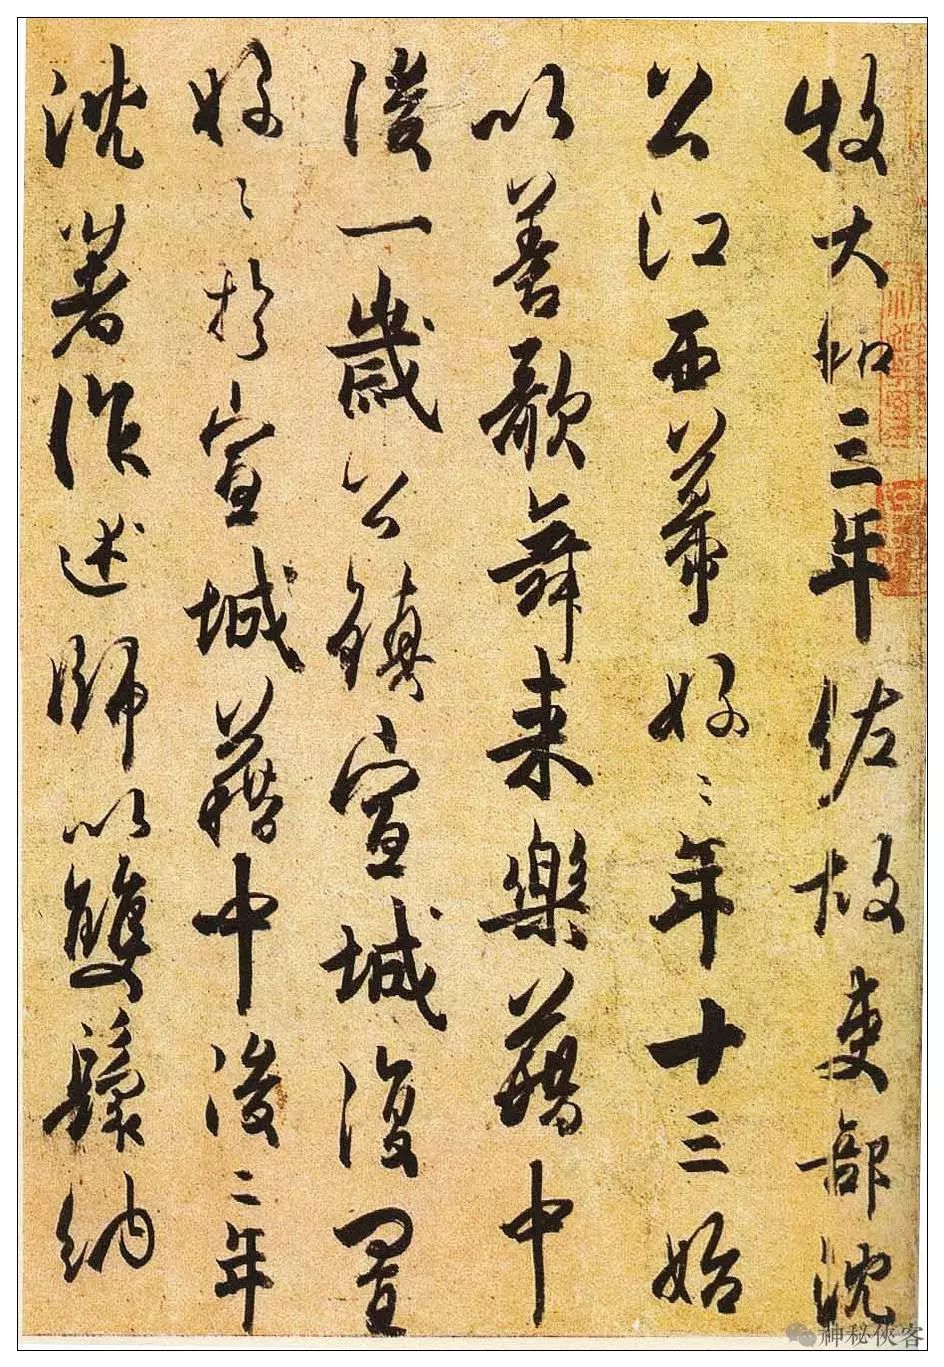 牧大和三年佐故吏部沈
公江西幕好〻年十三始
以善歌舞来樂籍中
後一歲公鎮宣城復置
好〻於宣城籍中後二年
沈著作述師以雙鬟納
神秘俠客